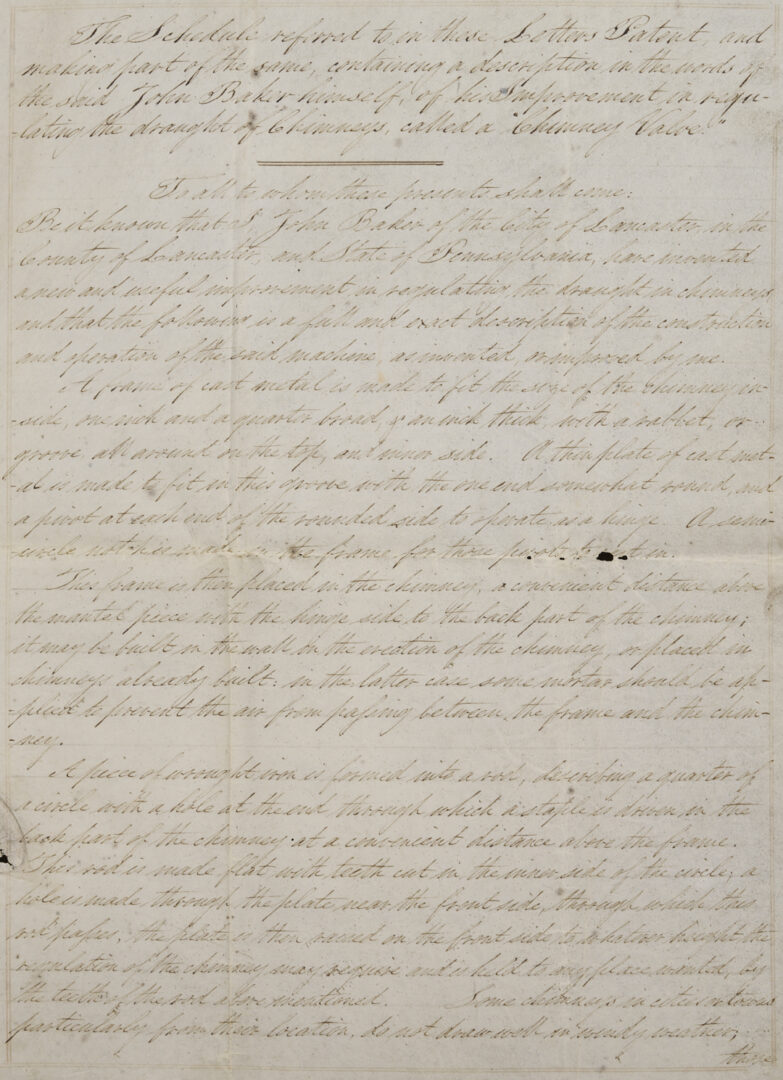 The Schedule referred to in these Letters Patent, and
making part of the same, containing a description in the words of
the said John Baker himself, of his Improvement in regu-
-lating the draught of Chimneys, called a "Chimney Valve."
To all to whom these presents shall come:
Be it known that I, John Baker of the City of Lancaster, in the
County of Lancaster, and State of Pennsylvania, have invented
a new and useful improvement in regulating the draught in chimneys,
and that the following is a full and exact description of the construction
and operation of the said machine, as invented, or improved by me.
A frame of cast metal is made to fit the size of the chimney in-
-side, one inch and a quarter broad, & an inch thick, with a rabbet, or
groove all around on the top, and inner side. A thin plate of cast met-
-al is made to fit in this groove with the one end somewhat round, and
a pivot at each end of the rounded side to operate as a hinge. A semi-
circle notch is made in the frame for those pivots to in.
This frame is then placed in the chimney, a convenient distance above
the mantel piece with the hinge side to the back part of the chimney;
it may be built in the wall on the erection of the chimney, or placed in
chimneys already built: in the latter case some mortar should be ap-
-plied to prevent the air from passing between the frame and the chim-
-ney.
A piece of wrought iron is formed into a rod, describing a quarter of
a circle with a hole at the end through which a staple is driven in the
back part of the chimney at a convenient distance above the frame.
This rod is made flat with teeth cut in the inner side of the circle; a
hole is made through the plate near the front side, through which this
rod passes; the plate is then raised on the front side to whatever height the
regulation of the chimney may require and is held to any place wanted, by
the teeth of the rod above mentioned. Some chimneys in cities or towns
particularly from their location, do not draw well in windy weather;
those